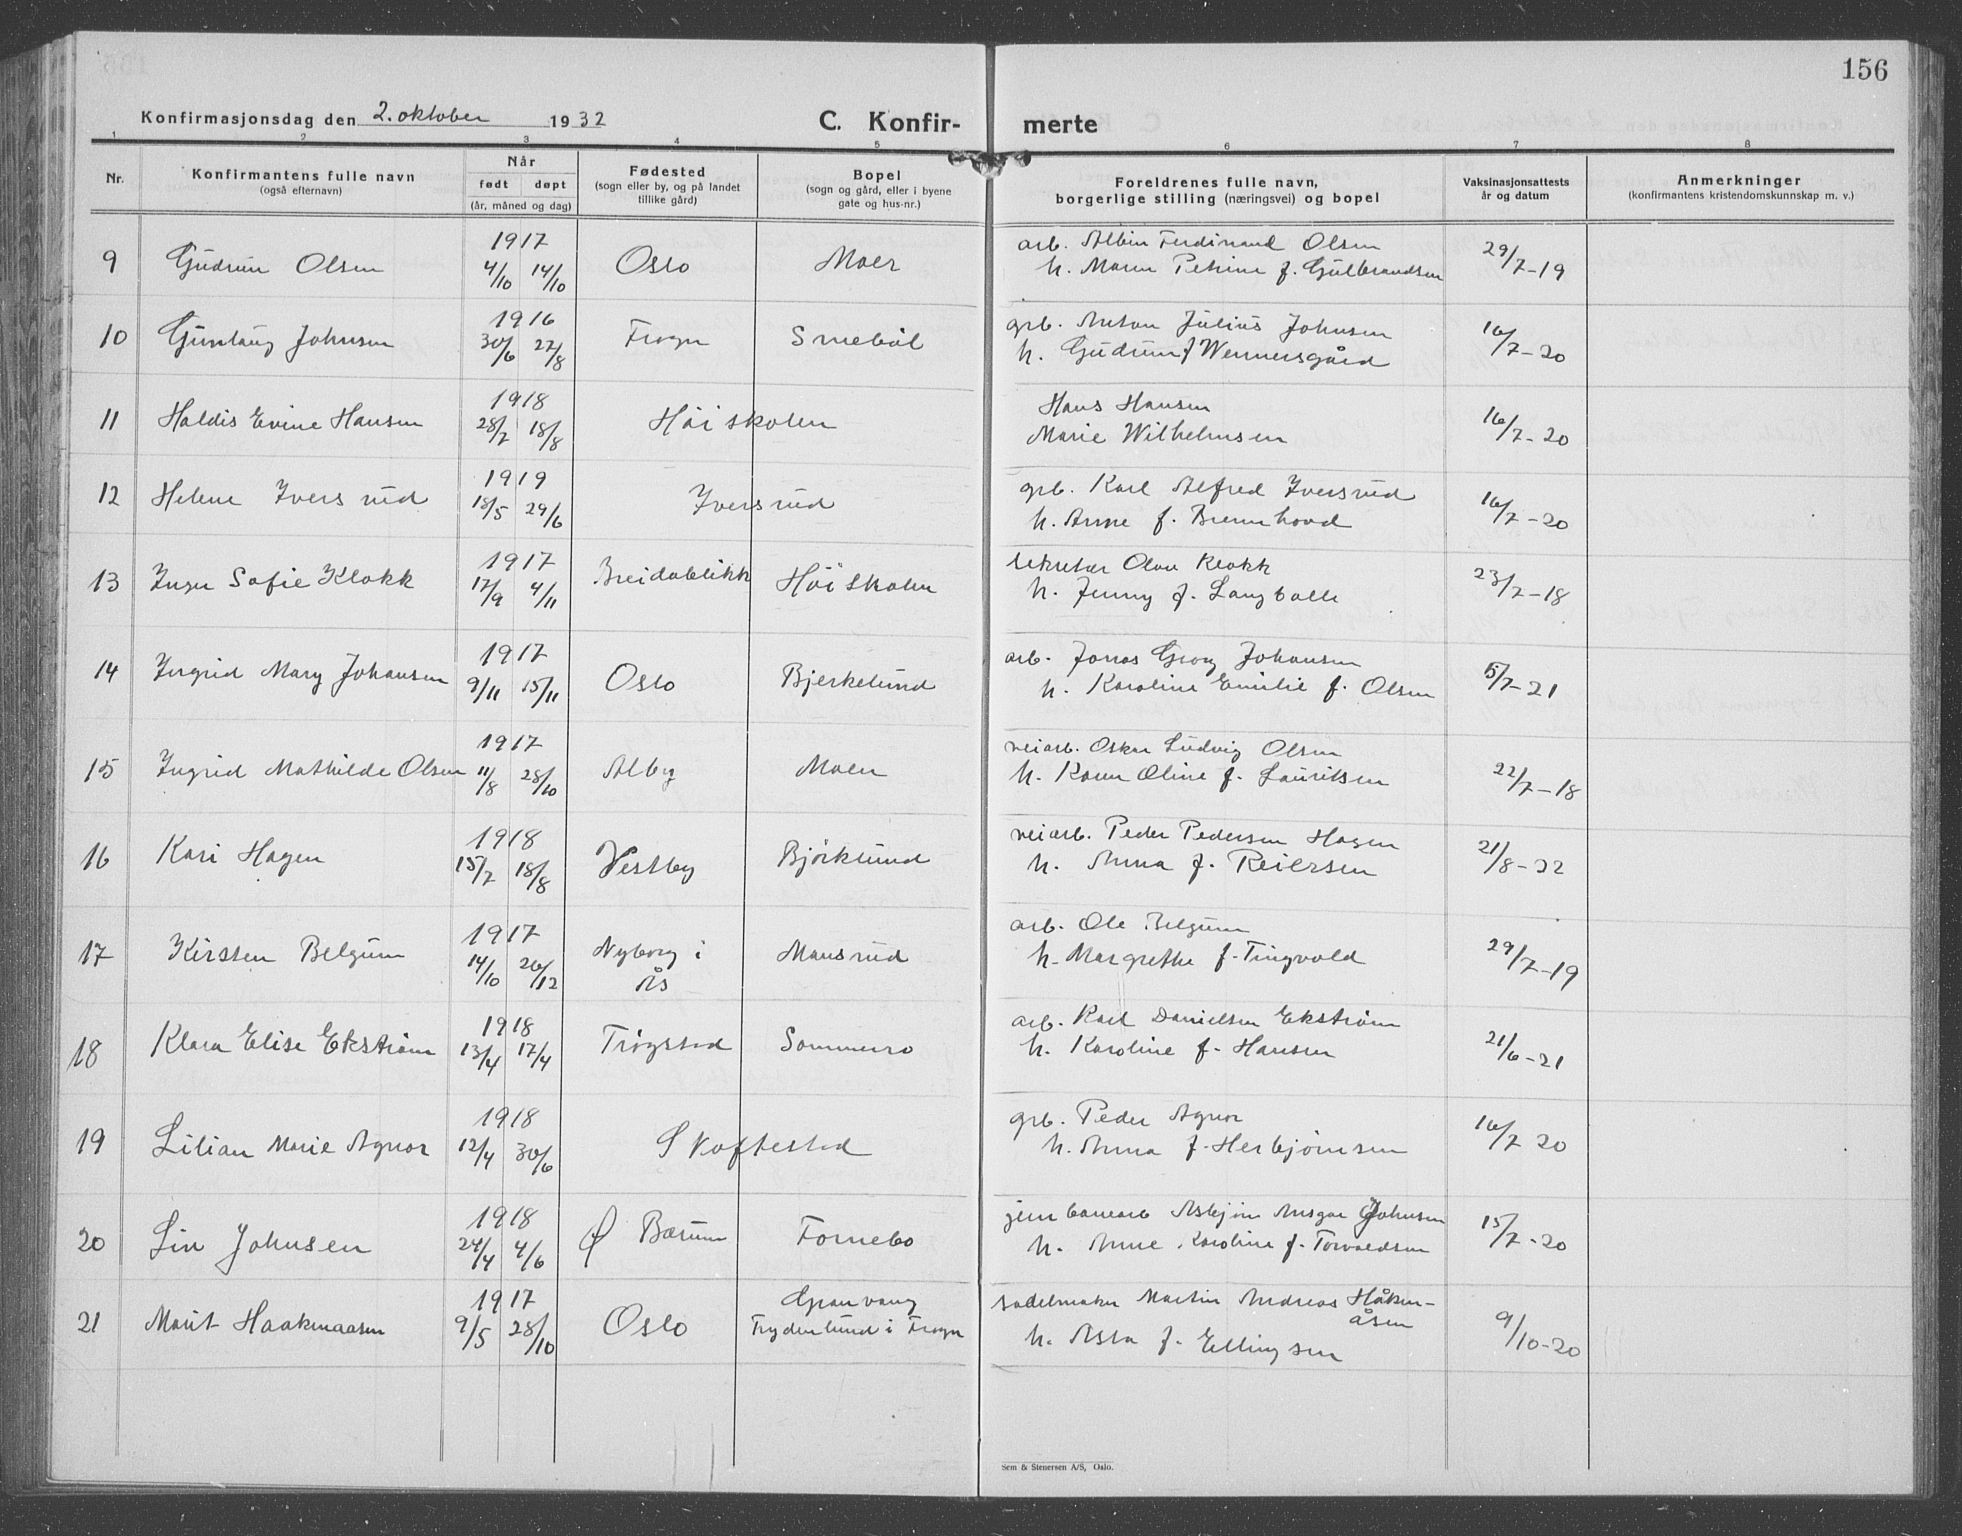 156
Konfirmasjonsdag den 2. oktober 1932 C. Konfir- merte
1 2 3 4 5 6 7 8
Nr. Konfirmantens fulle navn (også efternavn) Når født døpt (år, måned og dag) Fødested (sogn eller by, og på landet tillike gård) Bopel (sogn og gård, eller i byene gate og hus-nr.) Foreldrenes fulle navn, borgerlige stilling (næringsvei) og bopel Vaksinasjonsattests år og datum Anmerkninger (konfirmantens kristendomskunnskap m. v.)
9 Gudrun Olsen 1917 4/10 14/10 Oslo Moer arb. Albin Ferdinand Olsen
h. Maren Petrine f. Gulbrandsen 29/7-19
10 Gunlaug Johnsen 1916 30/6 27/8 Frogn Snebøl grb. Anton Julius Johnsen
h. Gudrun f Wennersgård 16/7-20
11 Haldis Evine Hansen 1918 28/7 18/8 Höiskolen Hans Hansen
Marie Wilhelmsen 16/7-20
12 Helene Iversrud 1919 18/5 29/6 Iversrud grb. Karl Alfred Iversrud
h. Anne f. Brennhovd 16/7-20
13 Inger Sofie Klokk 1917 17/9 4/11 Breidablikk Höiskolen sekretær Olav Klokk
h. Jenny f. Langballe 23/7-18
14 Ingrid Mary Johansen 1917 9/11 15/11 Oslo Bjerkelund arb. Jonas Georg Johansen
h. Karoline Emilie f. Olsen 15/7-21
15 Ingrid Mathilde Olsen 1917 11/8 28/10 Alby Moen veiarb. Oskar Ludvig Olsen
h. Karen Oline f. Lauritsen 22/7-18
16 Kari Hagen 1918 15/7 18/8 Vestby Björklund veiarb. Peder Pedersen Hagen
h. Anna f. Reiersen 21/8-22
17 Kirsten Belgum 1917 14/10 26/12 Nyborg i Ås Mansrud arb. Ole Belgum
h. Margrethe f. Tingvold 29/7-19
18 Klara Elise Ekstrøm 1918 13/4 17/4 Trögstad Sommerro arb. Karl Danielsen Ekstrøm
h. Karoline f. Hansen 21/6-21
19 Lilian Marie Agnor 1918 12/4 30/6 Skoftestad grb. Peder Agnor
h. Anna f. Herbjørnsen 16/7 20
20 Liv Johnsen 1918 24/4 4/6 Ø Bærum Fornebo jernbanearb Asbjørn Ansgar Johnsen
h. Anne Karoline f. Torvaldsen 15/7-20
21 Marit Haakenaasen 1917 9/5 28/10 Oslo Granvang
Frydenlund i Frogn sadelmaker Martin Andreas Håken-
åsen
h. Asta f. Ellingsen 9/10-20
Sem & Stenersen A/S, Oslo.